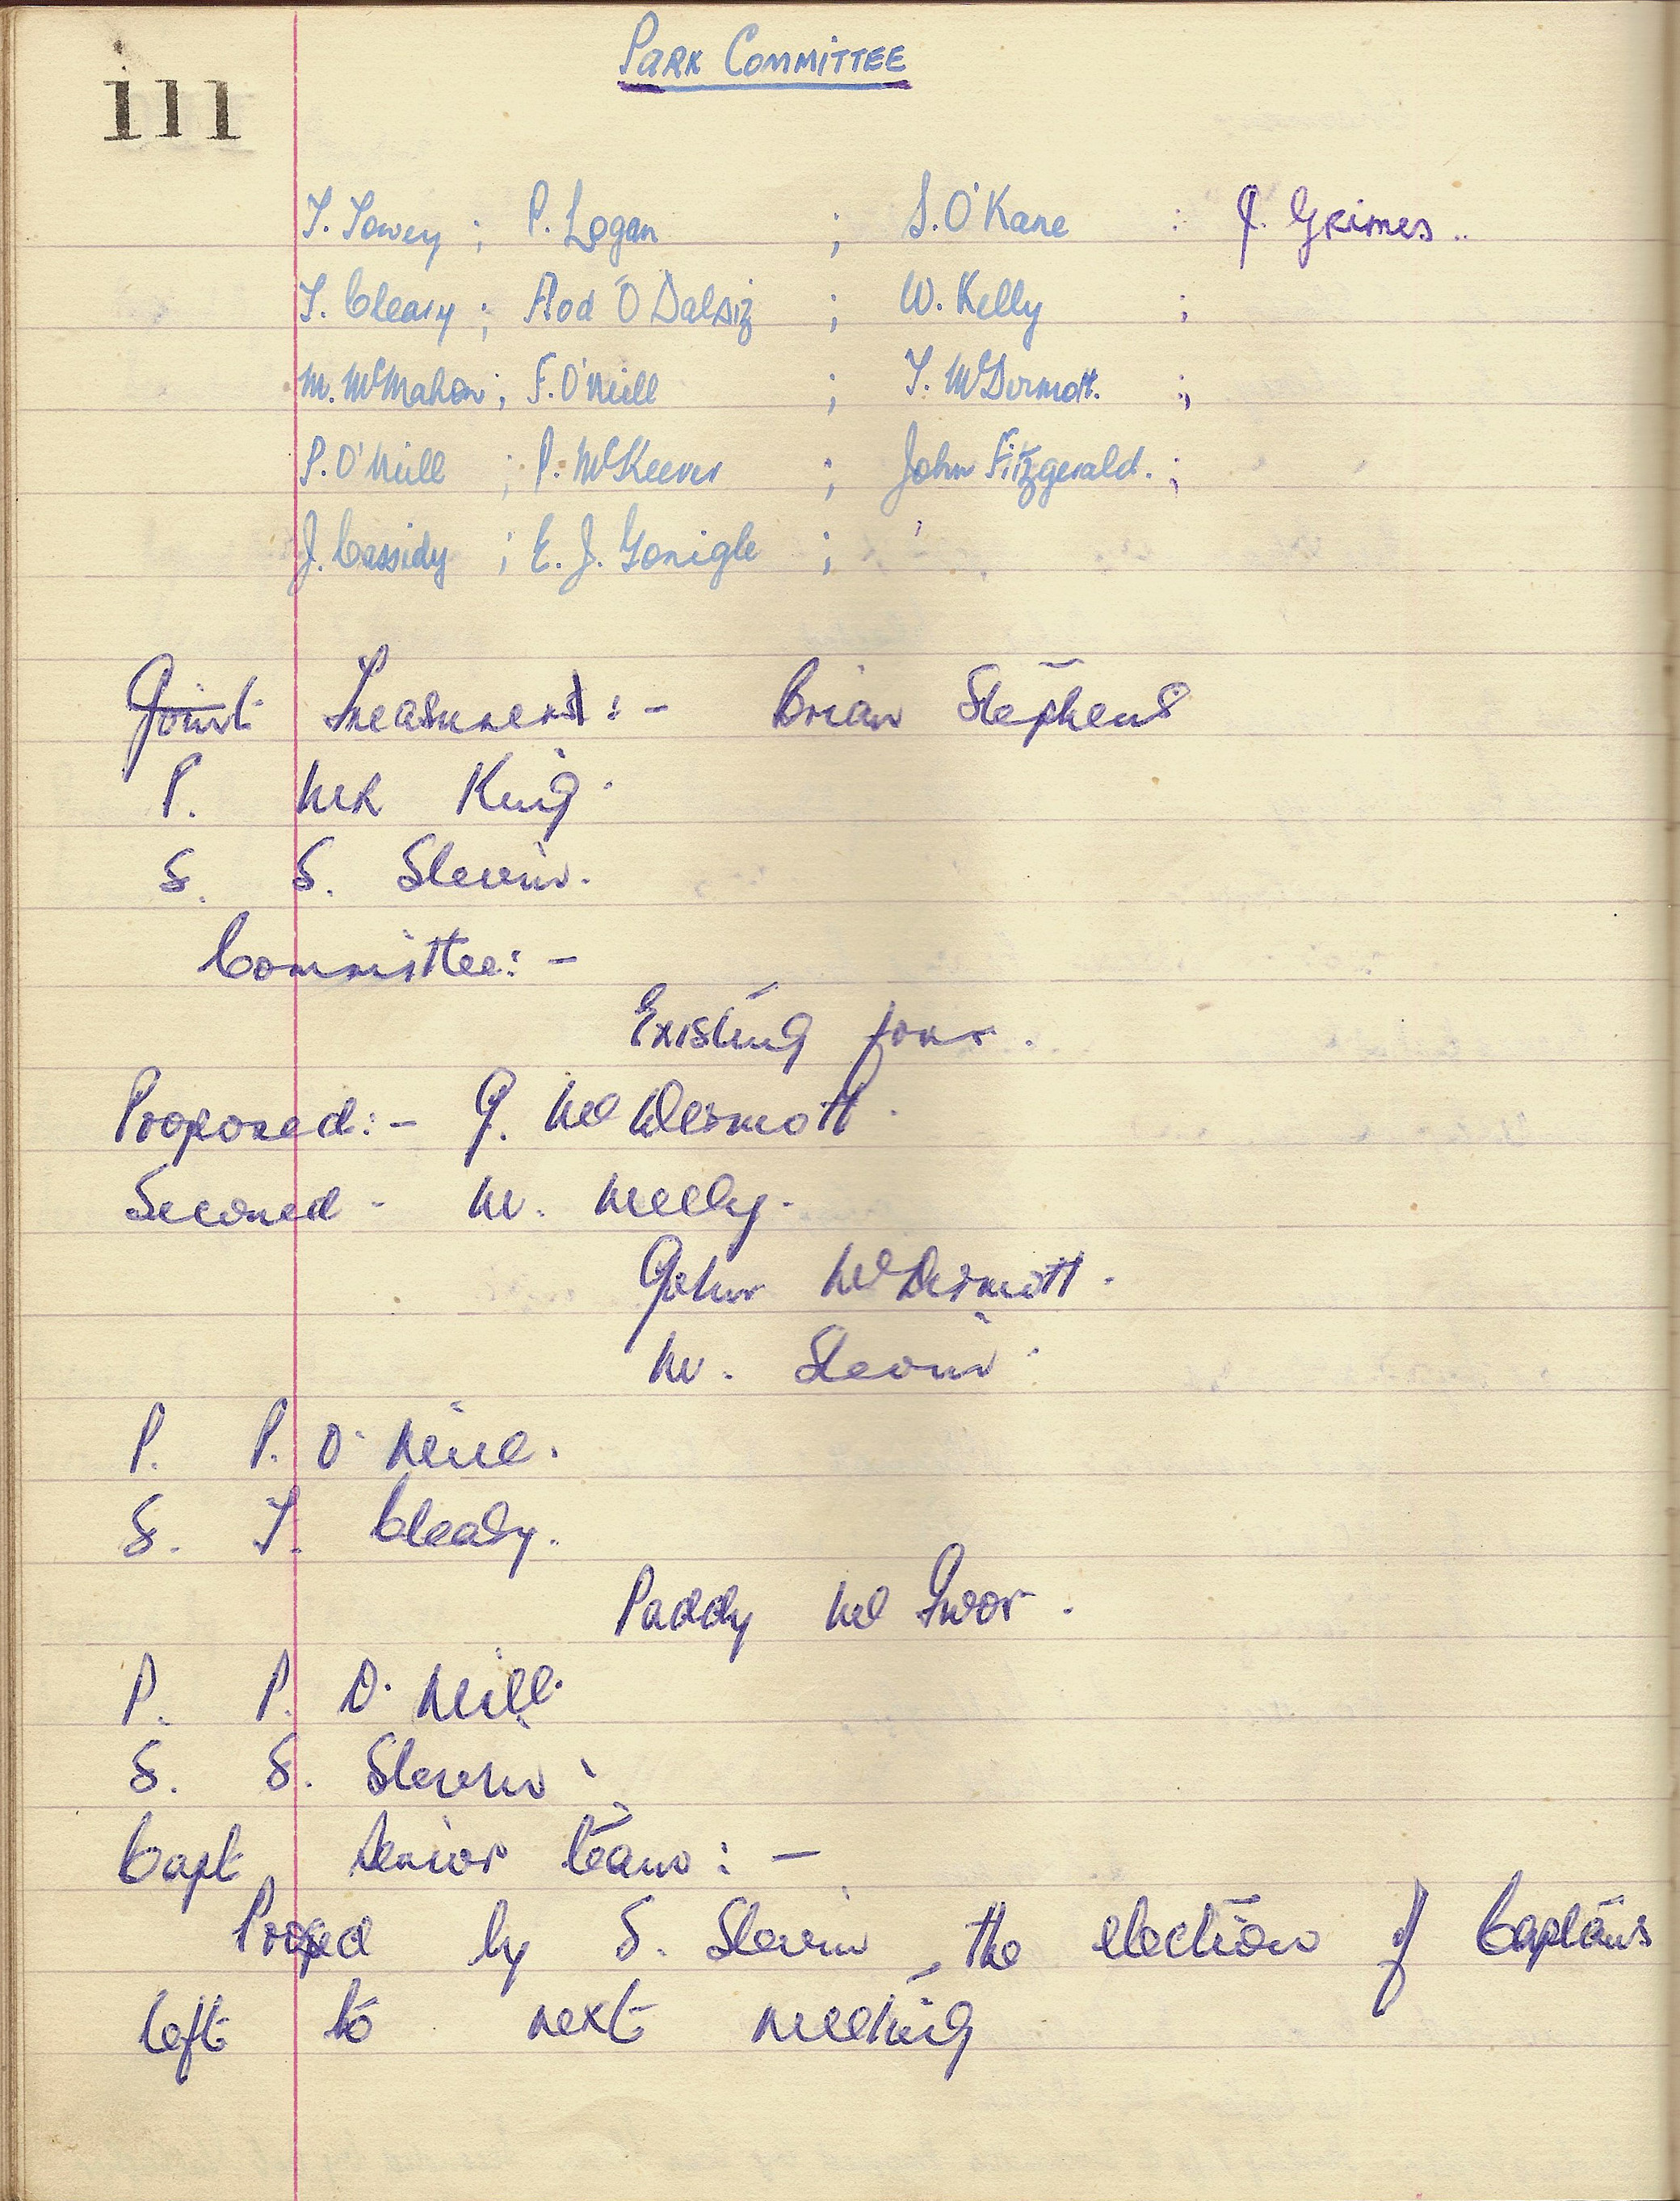 111
PARK COMMITTEE
T. Towey ; P. Logan ; S. O'Kane : J. Grimes ..
T. Cleary ; Aod Ó Dalaiġ ; W. Kelly ;
M. McMahon ; F. O'Neill ; T. McDermott. ;
P. O'Neill ; P. McKeever ; John Fitzgerald. ;
J. Cassidy ; E. J. Gonigle ;
Joint Treasurers :- Brian Stephens
P. King.
S. S. Slevin.
Committee :-
Existing four.
Proposed :- J. McDermott.
Seconed - M. Melly.
John McDermott.
M. Slevin.
P. P. O'Neill.
S. T. Cleary.
Paddy Mc Ivor.
P. P. O'Neill.
S. S. Slevin.
Capt Senior team : -
Proped by S. Slevin the election of Captains
left to next meeting